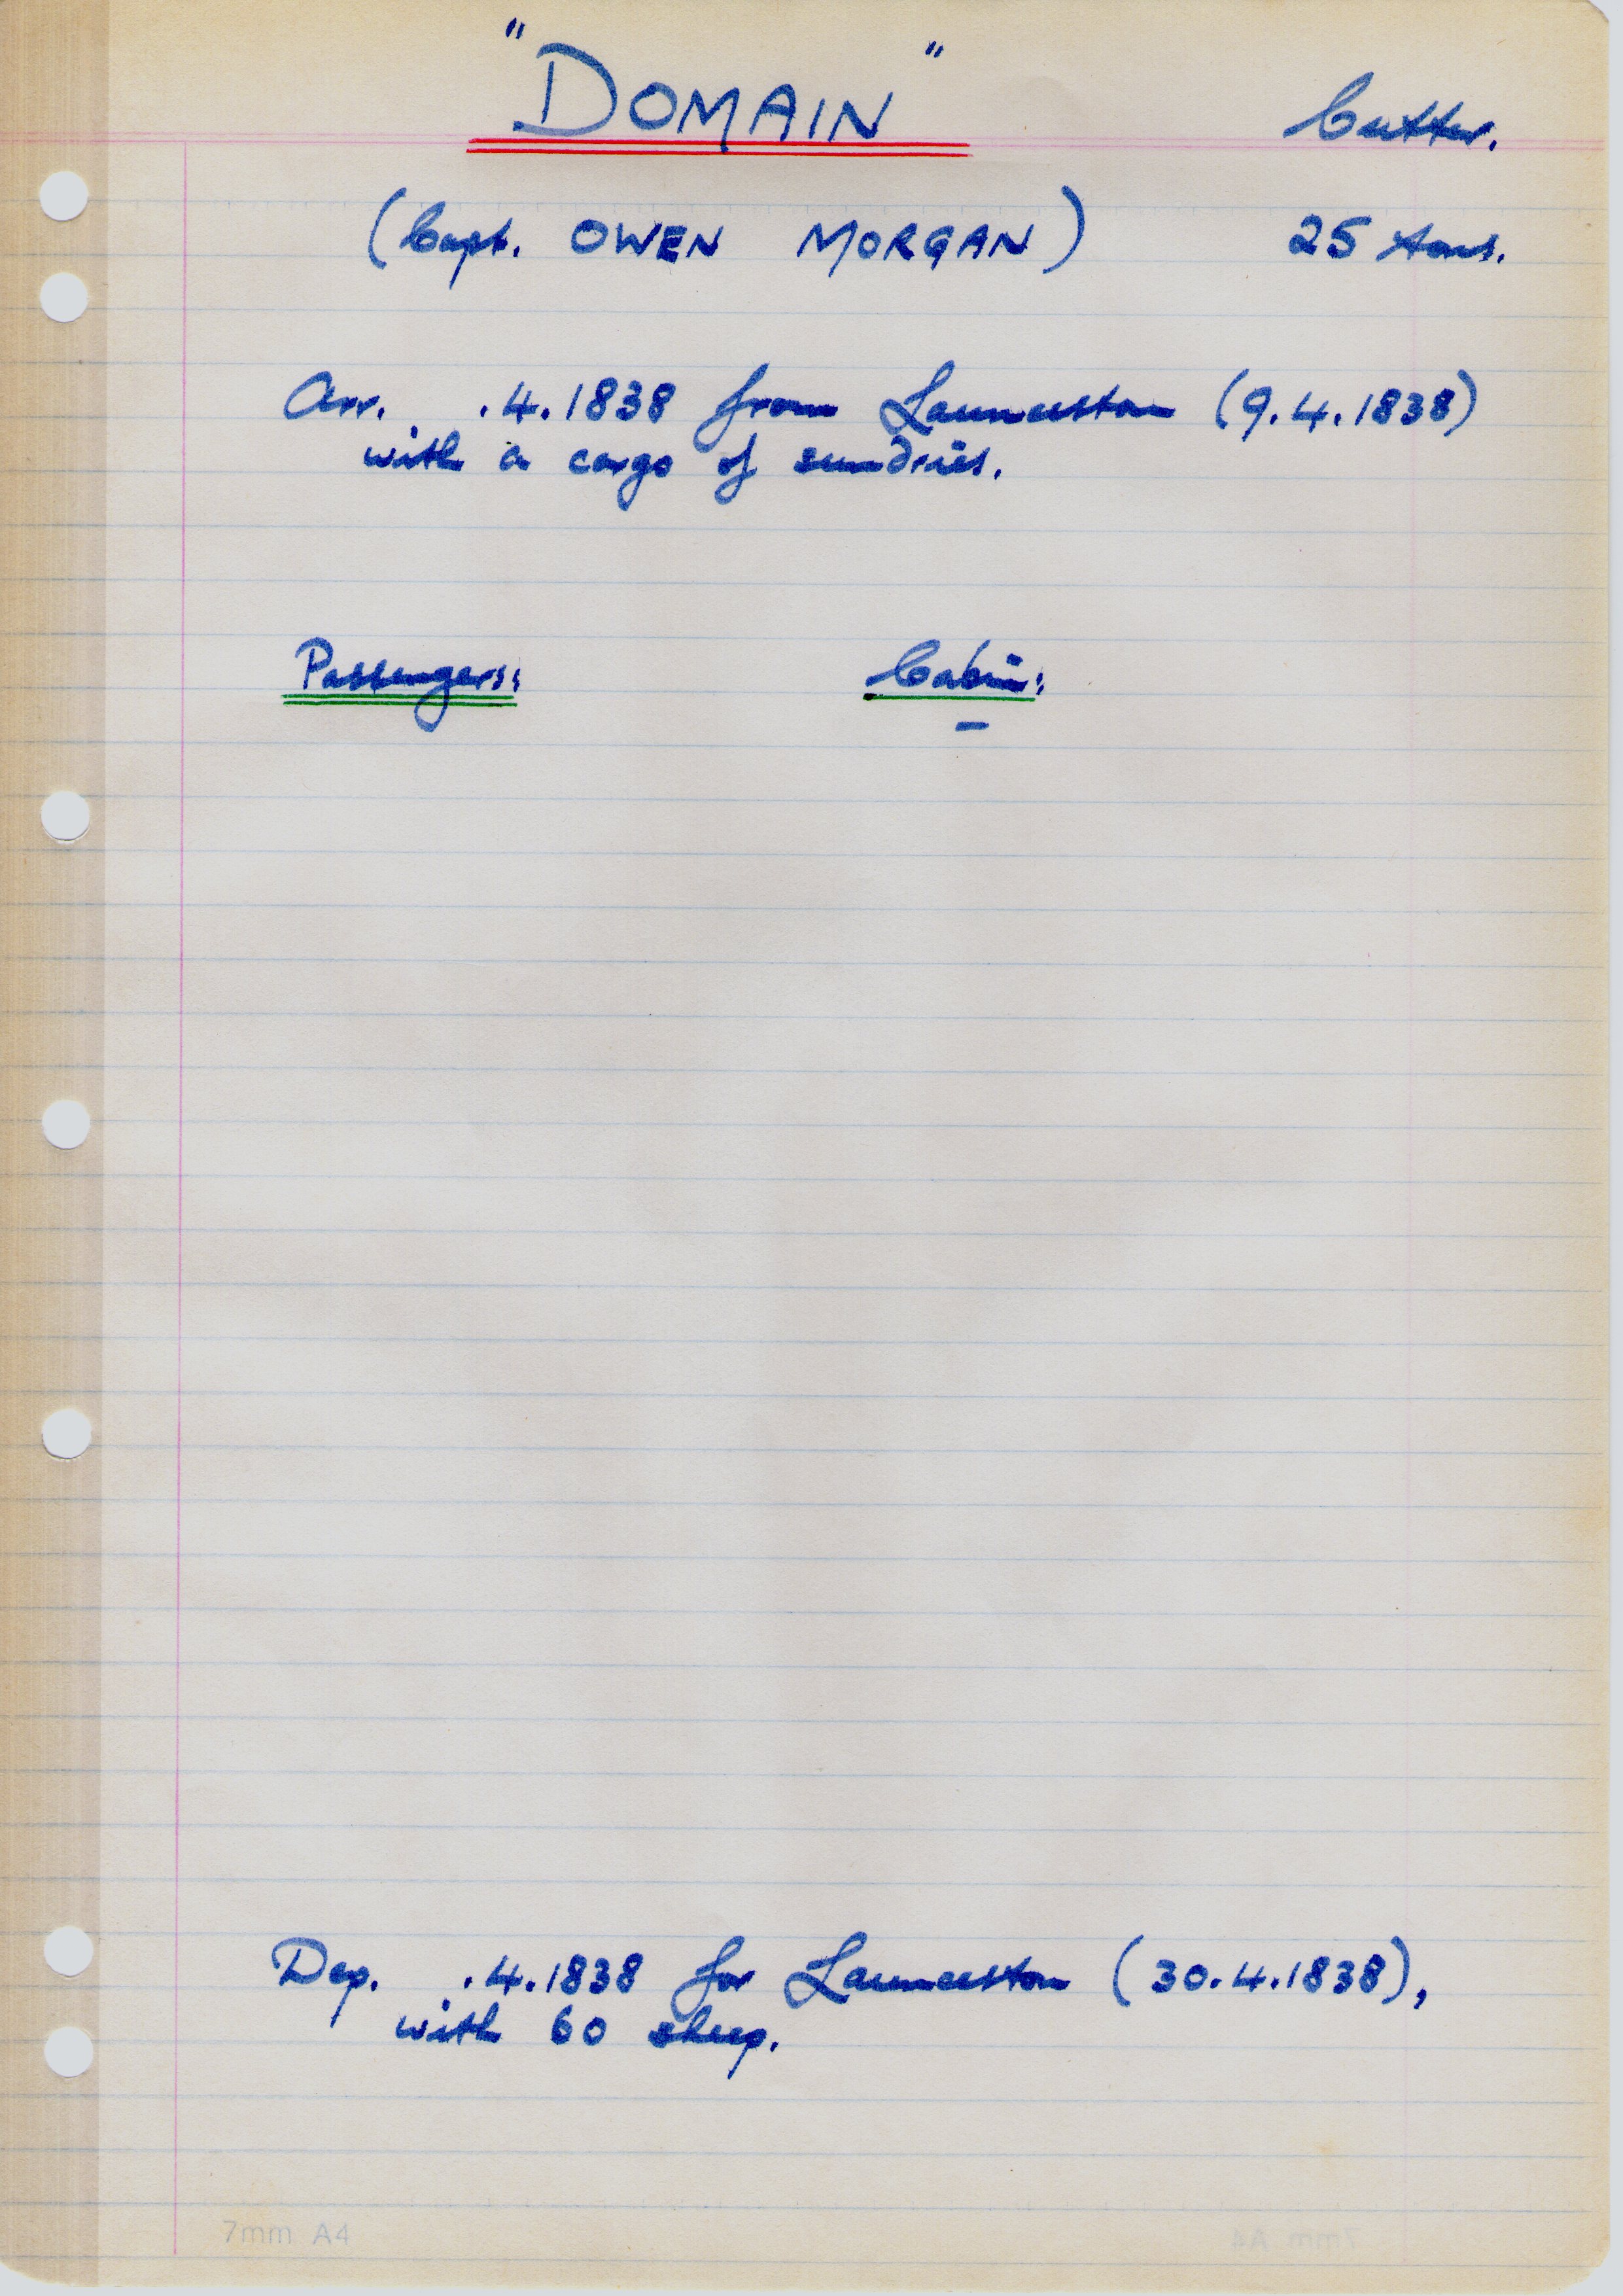 "DOMAIN" Cutter.
(Capt. OWEN MORGAN) 25 tons.
Arr. .4.1838 from Launceston (9.4.1838)
with a cargo of sundries.
Passengers: Cabin:
–
Dep. .4.1838 for Launceston (30.4.1838),
with 60 sheep.
7mm A4